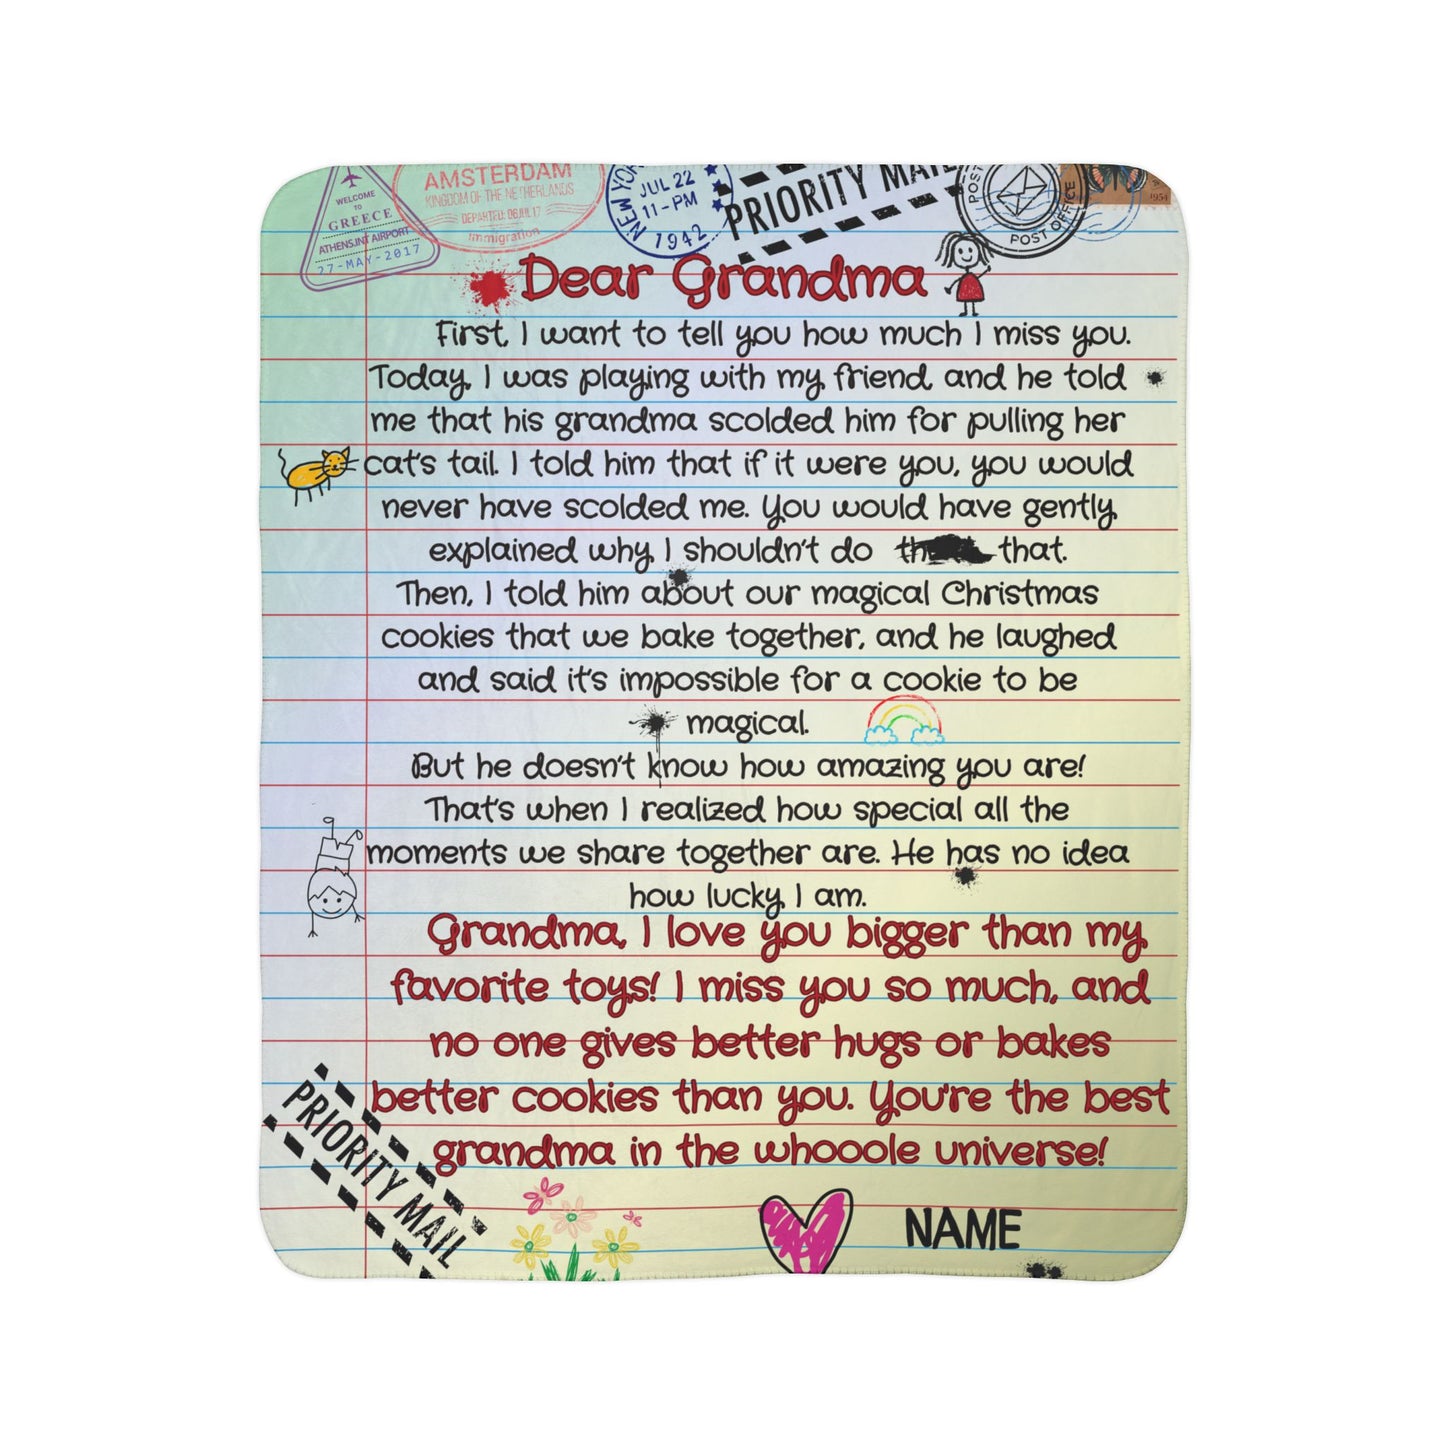 WELCOME
TO
GREECE
ATHENS.INT AIRPORT
27-MAY-2017
AMSTERDAM
KINGDOM OF THE NETHERLANDS
DEPARTED: 06JUL17
immigration
NEW YO
JUL 22
11-PM
1942
PRIORITY MAIL
POST
POST OFFICE
1954
Dear Grandma
First, I want to tell you how much I miss you.
Today, I was playing with my friend, and he told
me that his grandma scolded him for pulling her
cat's tail. I told him that if it were you, you would
never have scolded me. You would have gently
explained why I shouldn't do that.
Then, I told him about our magical Christmas
cookies that we bake together, and he laughed
and said it's impossible for a cookie to be
magical.
But he doesn't know how amazing you are!
That's when I realized how special all the
moments we share together are. He has no idea
how lucky I am.
Grandma, I love you bigger than my
favorite toys! I miss you so much, and
no one gives better hugs or bakes
better cookies than you. You're the best
grandma in the whooole universe!
PRIORITY MAIL
NAME